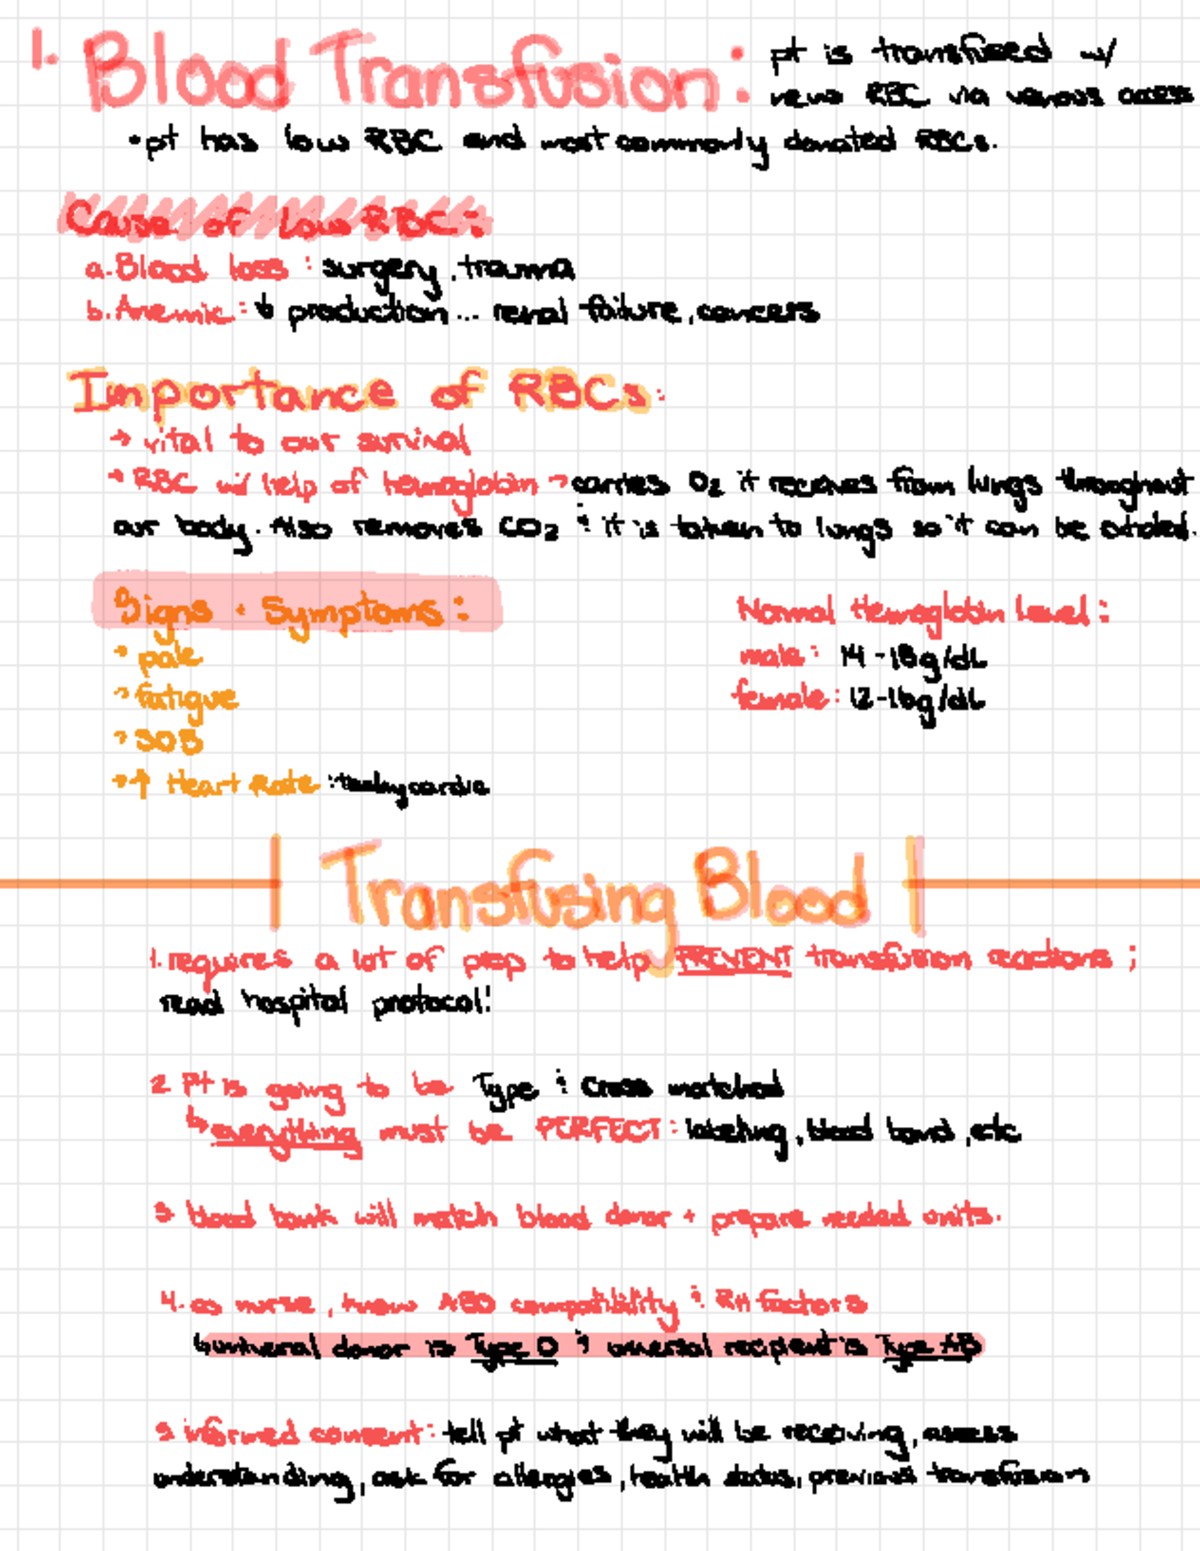 1. Blood Transfusion: pt is transfused w/
new RBC via venous access
•pt has low RBC and most commonly donated RBCs.
Cause of Low RBC:
a. Blood loss: surgery, trauma
b. Anemic: ↓ production... renal failure, cancers
Importance of RBCs:
→ vital to our survival
→ RBC w/ help of hemoglobin → carries O2 it receives from lungs throughout
our body. Also removes CO2 & it is taken to lungs so it can be exhaled.
Signs + Symptoms:
→ pale
→ fatigue
→ SOB
→ ↑ Heart Rate: tachycardia
Normal Hemoglobin Level:
male: 14-18g/dL
female: 12-16g/dL
Transfusing Blood
1. requires a lot of prep to help PREVENT transfusion reactions;
read hospital protocol!
2 Pt is going to be Type & Cross matched
↳ everything must be PERFECT: labeling, blood band, etc
3 blood bank will match blood donor + prepare needed units.
4. as nurse, know ABO compatibility & RH factors
↳ universal donor is Type O & universal recipient is Type AB
5 informed consent: tell pt what they will be receiving, assess
understanding, ask for allergies, health status, previous transfusion